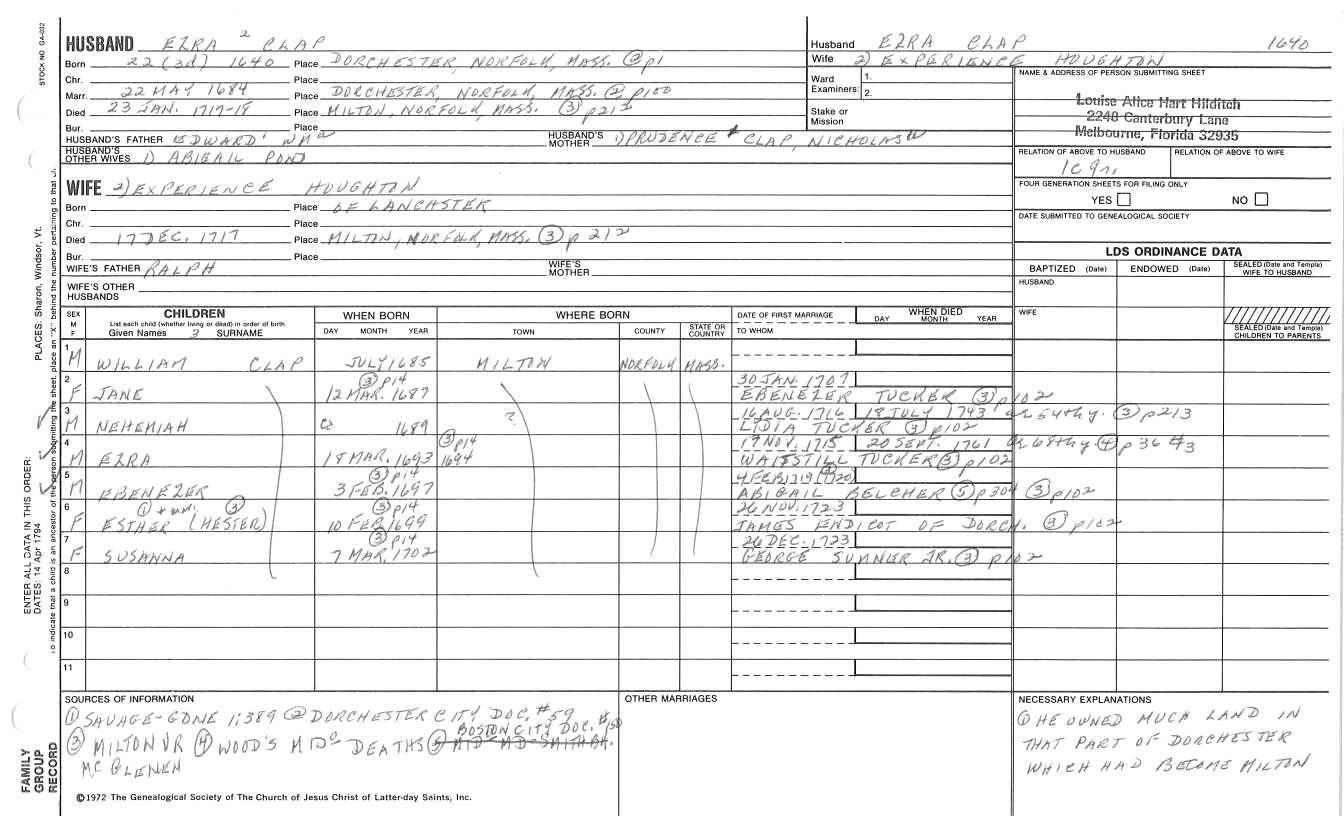 STOCK NO GA-032
HUSBAND EZRA 2 CLAP
Born 22 (3d) 1640 Place DORCHESTER, NORFOLK, MASS. ③ p1
Chr. Place
Marr. 22 MAY 1684 Place DORCHESTER, NORFOLK, MASS. ② p100
Died 23 JAN. 1717-18 Place MILTON, NORFOLK, MASS. ③ p212
Bur. Place
HUSBAND'S FATHER EDWARD HUSBAND'S MOTHER 1) PRUDENCE CLAP, NICHOLAS
HUSBAND'S OTHER WIVES 1) ABIGAIL POND
Husband EZRA CLAP 1640
Wife 2) EXPERIENCE HOUGHTON
Ward Examiners: 1.
2.
Stake or Mission
NAME & ADDRESS OF PERSON SUBMITTING SHEET
Louise Alice Hart Hilditch
2248 Canterbury Lane
Melbourne, Florida 32935
RELATION OF ABOVE TO HUSBAND RELATION OF ABOVE TO WIFE
FOUR GENERATION SHEETS FOR FILING ONLY
YES NO
DATE SUBMITTED TO GENEALOGICAL SOCIETY
WIFE 2) EXPERIENCE HOUGHTON
Born Place OF LANCASTER
Chr. Place
Died 17 DEC. 1717 Place MILTON, NORFOLK, MASS. ③ p 212
Bur. Place
WIFE'S FATHER RALPH WIFE'S MOTHER
WIFE'S OTHER HUSBANDS
LDS ORDINANCE DATA
BAPTIZED (Date) ENDOWED (Date) SEALED (Date and Temple) WIFE TO HUSBAND
HUSBAND
WIFE
SEALED (Date and Temple) CHILDREN TO PARENTS
SEX M F CHILDREN WHEN BORN WHERE BORN DATE OF FIRST MARRIAGE WHEN DIED
List each child (whether living or dead) in order of birth DAY MONTH YEAR
Given Names 3 SURNAME DAY MONTH YEAR TOWN COUNTY STATE OR COUNTRY TO WHOM
1 M WILLIAM CLAP JULY 1685 MILTON NORFOLK MASS.
2 ③ p14 30 JAN. 1707
F JANE 12 MAR. 1687 EBENEZER TUCKER ③ p102
3 ? 16 AUG. 1716 18 JULY 1743 in 54th y. ③ p213
M NEHEMIAH 1689 LYDIA TUCKER ③ p102
4 ③ p14 17 NOV. 1715 20 SEPT. 1761 in 68th y ④ p36 #3
M EZRA 18 MAR. 1693 1694 WAITSTILL TUCKER ③ p102
5 ③ p14 4 FEB 1719 (1720) ③
M EBENEZER 3 FEB. 1697 ABIGAIL BELCHER ⑤ p304 ③ p102
6 ① ③ ③ p14 26 NOV. 1723
F ESTHER (HESTER) 10 FEB 1699 JAMES ENDICOT OF DORCH. ③ p102
7 ③ p14 26 DEC. 1723
F SUSANNA 7 MAR. 1702 GEORGE SUMNER JR. ③ p102
8
9
10
11
SOURCES OF INFORMATION
① SAVAGE-GDNE 1:389 ② DORCHESTER CITY DOC. #59
BOSTON CITY DOC. #150
③ MILTON VR ④ WOOD'S MIDC DEATHS ⑤
MCGLENEN
OTHER MARRIAGES
NECESSARY EXPLANATIONS
① HE OWNED MUCH LAND IN
THAT PART OF DORCHESTER
WHICH HAD BECOME MILTON
©1972 The Genealogical Society of The Church of Jesus Christ of Latter-day Saints, Inc.
FAMILY GROUP RECORD
ENTER ALL DATA IN THIS ORDER:
DATES: 14 Apr 1794
PLACES: Sharon, Windsor, Vt.
To indicate that a child is an ancestor of the person submitting the sheet, place an "X" behind the number pertaining to that